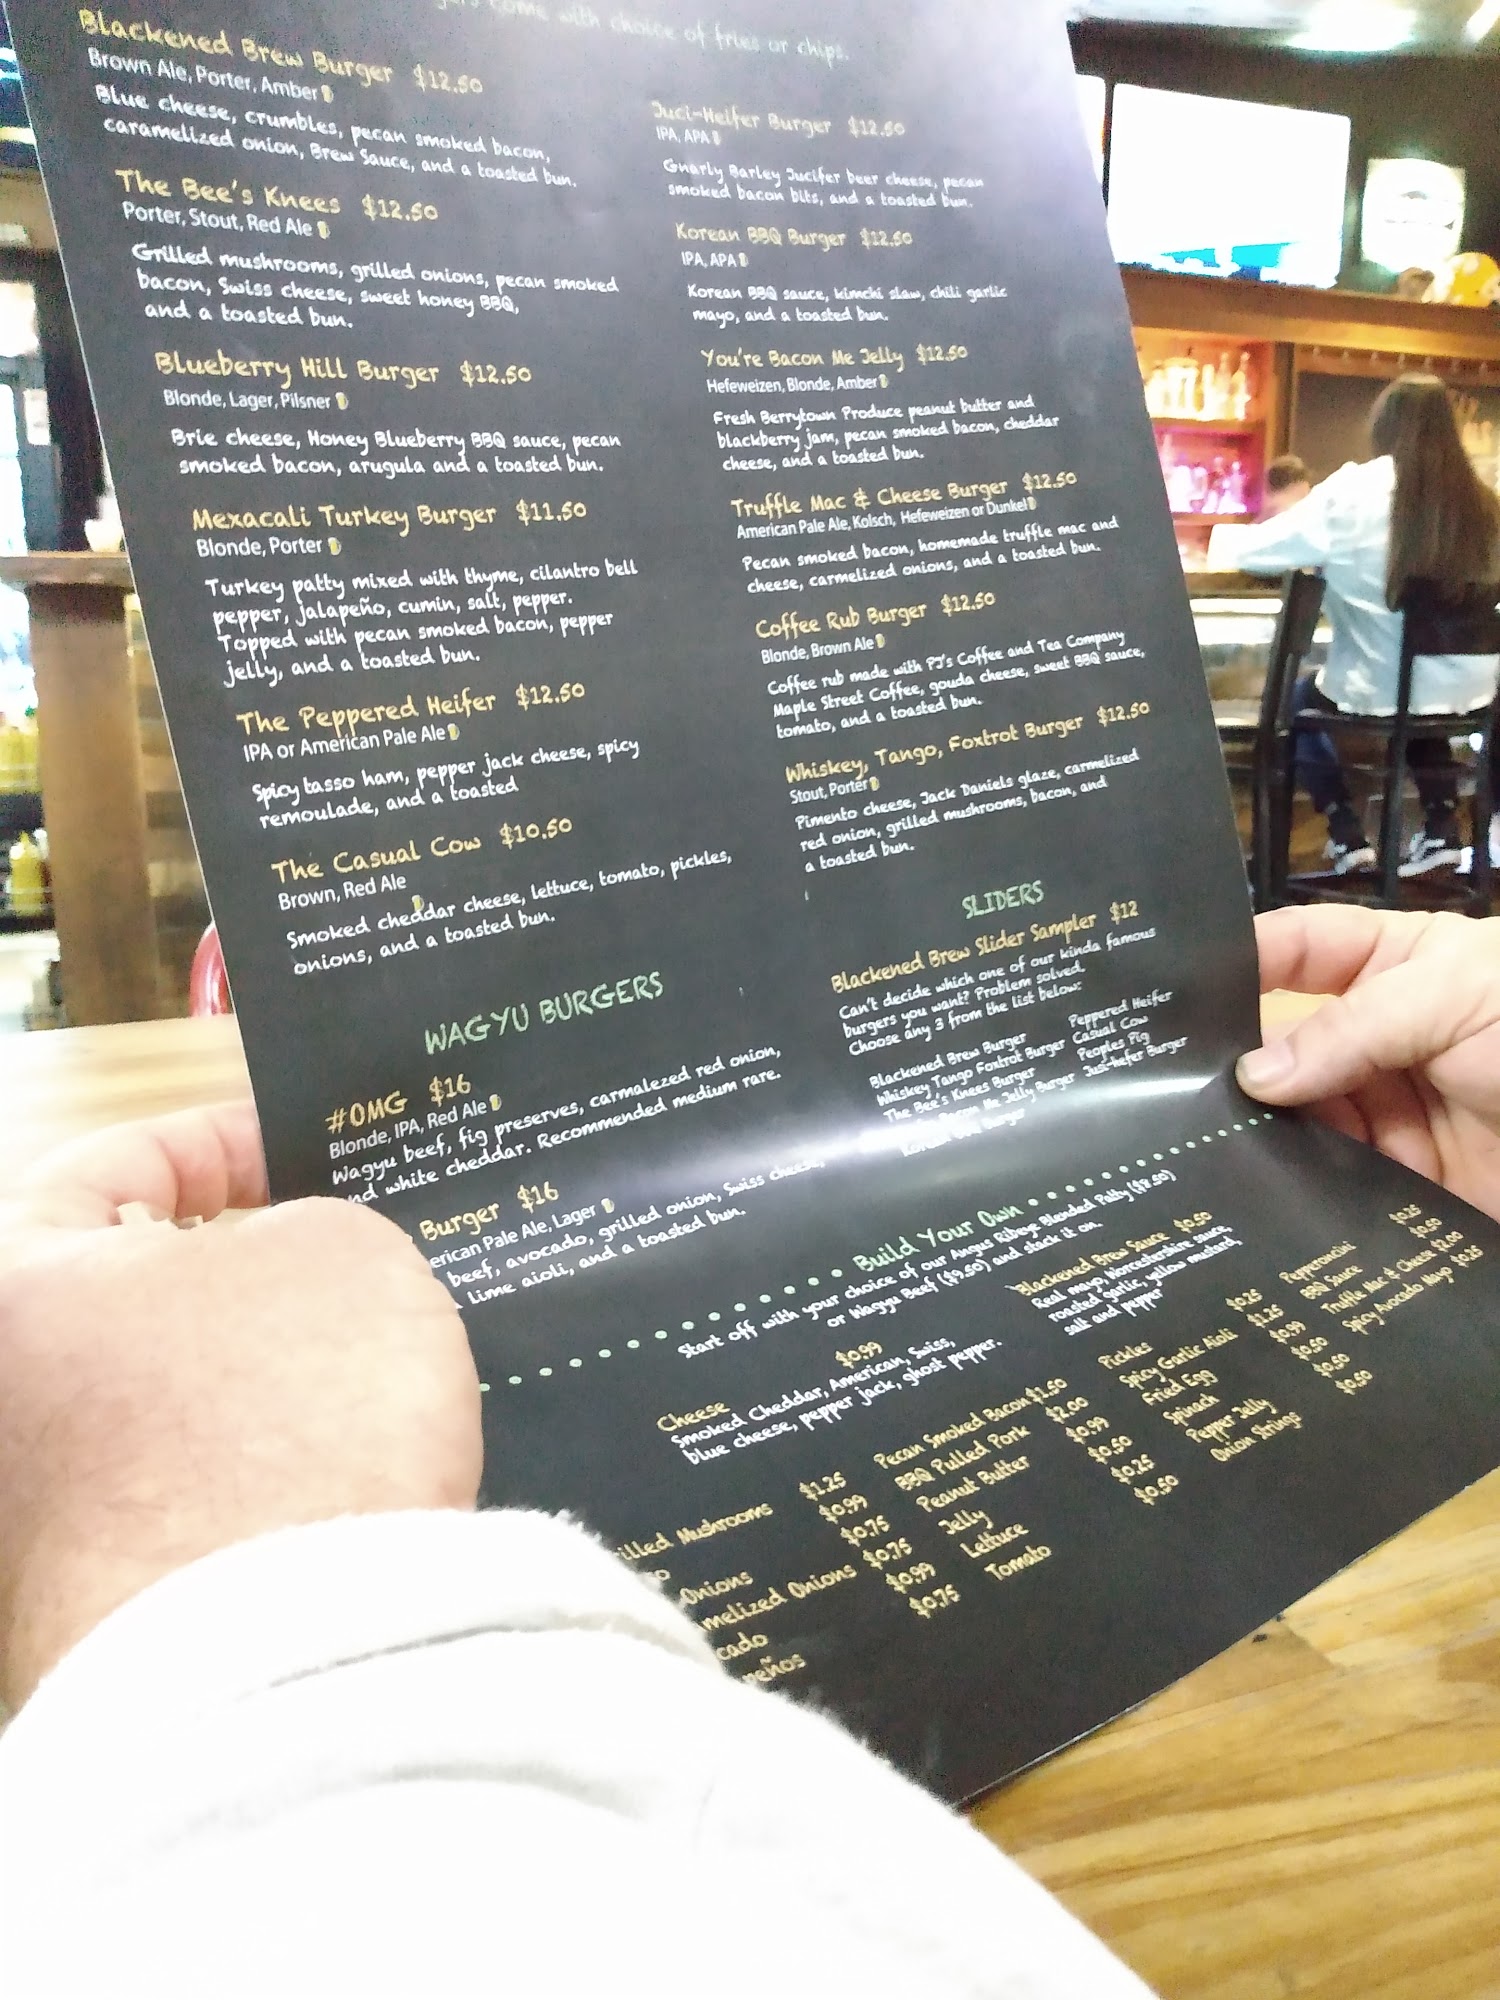 come with choice of fries or chips.
Blackened Brew Burger $12.50
Brown Ale, Porter, Amber
Blue cheese, crumbles, pecan smoked bacon,
caramelized onion, Brew Sauce, and a toasted bun.
The Bee's Knees $12.50
Porter, Stout, Red Ale
Grilled mushrooms, grilled onions, pecan smoked
bacon, Swiss cheese, sweet honey BBQ,
and a toasted bun.
Blueberry Hill Burger $12.50
Blonde, Lager, Pilsner
Brie cheese, Honey Blueberry BBQ sauce, pecan
smoked bacon, arugula and a toasted bun.
Mexacali Turkey Burger $11.50
Blonde, Porter
Turkey patty mixed with thyme, cilantro bell
pepper, jalapeño, cumin, salt, pepper.
Topped with pecan smoked bacon, pepper
jelly, and a toasted bun.
The Peppered Heifer $12.50
IPA or American Pale Ale
Spicy tasso ham, pepper jack cheese, spicy
remoulade, and a toasted
The Casual Cow $10.50
Brown, Red Ale
Smoked cheddar cheese, lettuce, tomato, pickles,
onions, and a toasted bun.
WAGYU BURGERS
#OMG $16
Blonde, IPA, Red Ale
Wagyu beef, fig preserves, carmalezed red onion,
nd white cheddar. Recommended medium rare.
Burger $16
erican Pale Ale, Lager
beef, avocado, grilled onion, Swiss cheese,
lime aioli, and a toasted bun.
Juci-Heifer Burger $12.50
IPA, APA
Gnarly Barley Jucifer beer cheese, pecan
smoked bacon bits, and a toasted bun.
Korean BBQ Burger $12.50
IPA, APA
Korean BBQ sauce, kimchi slaw, chili garlic
mayo, and a toasted bun.
You're Bacon Me Jelly $12.50
Hefeweizen, Blonde, Amber
Fresh Berrytown Produce peanut butter and
blackberry jam, pecan smoked bacon, cheddar
cheese, and a toasted bun.
Truffle Mac & Cheese Burger $12.50
American Pale Ale, Kolsch, Hefeweizen or Dunkel
Pecan smoked bacon, homemade truffle mac and
cheese, carmelized onions, and a toasted bun.
Coffee Rub Burger $12.50
Blonde, Brown Ale
Coffee rub made with PJ's Coffee and Tea Company
Maple Street Coffee, gouda cheese, sweet BBQ sauce,
tomato, and a toasted bun.
Whiskey, Tango, Foxtrot Burger $12.50
Stout, Porter
Pimento cheese, Jack Daniels glaze, carmelized
red onion, grilled mushrooms, bacon, and
a toasted bun.
SLIDERS
Blackened Brew Slider Sampler $12
Can't decide which one of our kinda famous
burgers you want? Problem solved.
Choose any 3 from the list below:
Blackened Brew Burger
Whiskey Tango Foxtrot Burger
The Bee's Knees Burger
Bacon Me Jelly Burger
Korean BBQ Burger
Peppered Heifer
Casual Cow
Peoples Pig
Jusi-hefer Burger
Build Your Own
Start off with your choice of our Angus Ribeye Blended Patty ($8.50)
or Wagyu Beef ($9.50) and stack it on.
Cheese $0.99
Smoked Cheddar, American, Swiss,
blue cheese, pepper jack, ghost pepper.
Blackened Brew Sauce $0.50
Real mayo, Worcestershire sauce,
roasted garlic, yellow mustard,
salt and pepper
illed Mushrooms $1.25
$0.99
Onions $0.75
melized Onions $0.75
cado $0.99
peños $0.75
Pecan Smoked Bacon $1.50
BBQ Pulled Pork $2.00
Peanut Butter $0.99
Jelly $0.50
Lettuce $0.25
Tomato $0.50
Pickles $0.25
Spicy Garlic Aioli $1.25
Fried Egg $0.99
Spinach $0.50
Pepper Jelly $0.50
Onion Strings $0.50
Pepperoncini $0.25
BBQ Sauce $0.50
Truffle Mac & Cheese $2.00
Spicy Avocado Mayo $0.25